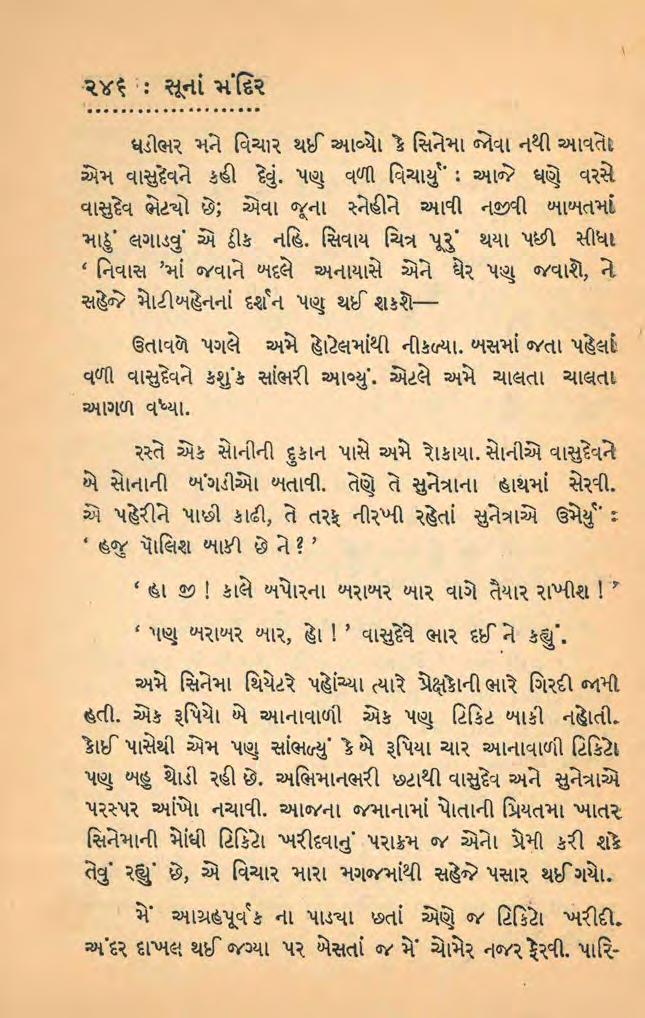 ૨૪૬ : સૂનાં મંદિર
ઘડીભર મને વિચાર થઈ આવ્યો કે સિનેમા જોવા નથી આવતો
એમ વાસુદેવને કહી દેવું. પણ વળી વિચાર્યું : આજે ઘણે વરસે
વાસુદેવ ભેટયો છે; એવા જૂના સ્નેહીને આવી નજીવી બાબતમાં
માઠું લગાડવું એ ઠીક નહિ. સિવાય ચિત્ર પૂરું થયા પછી સીધા
‘ નિવાસ ’માં જવાને બદલે અનાયાસે એને ઘેર પણ જવાશે, ને
સહેજે મોટીબહેનનાં દર્શન પણ થઈ શકશે—
ઉતાવળે પગલે અમે હોટેલમાંથી નીકળ્યા. બસમાં જતા પહેલાં
વળી વાસુદેવને કશુંક સાંભરી આવ્યું. એટલે અમે ચાલતા ચાલતા
આગળ વધ્યા.
રસ્તે એક સોનીની દુકાન પાસે અમે રોકાયા. સોનીએ વાસુદેવને
બે સોનાની બંગડીઓ બતાવી. તેણે તે સુનેત્રાના હાથમાં સેરવી.
એ પહેરીને પાછી કાઢી, તે તરફ નીરખી રહેતાં સુનેત્રાએ ઉમેર્યું :
‘ હજુ પૉલિશ બાકી છે ને ? ’
‘ હા જી ! કાલે બપોરના બરાબર બાર વાગે તૈયાર રાખીશ ! ’
‘ પણ બરાબર બાર, હો ! ’ વાસુદેવે ભાર દઈ ને કહ્યું.
અમે સિનેમા થિયેટરે પહોંચ્યા ત્યારે પ્રેક્ષકોની ભારે ગિરદી જામી
હતી. એક રૂપિયો બે આનાવાળી એક પણ ટિકિટ બાકી નહોતી.
કોઈ પાસેથી એમ પણ સાંભળ્યું કે બે રૂપિયા ચાર આનાવાળી ટિકિટો
પણ બહુ થોડી રહી છે. અભિમાનભરી છટાથી વાસુદેવ અને સુનેત્રાએ
પરસ્પર આંખો નચાવી. આજના જમાનામાં પોતાની પ્રિયતમા ખાતર
સિનેમાની મોંઘી ટિકિટો ખરીદવાનું પરાક્રમ જ એનો પ્રેમી કરી શકે
તેવું રહ્યું છે, એ વિચાર મારા મગજમાંથી સહેજે પસાર થઈ ગયો.
મેં આગ્રહપૂર્વક ના પાડયા છતાં એણે જ ટિકિટો ખરીદી.
અંદર દાખલ થઈ જગ્યા પર બેસતાં જ મેં ચોમેર નજર ફેરવી. પારિ-